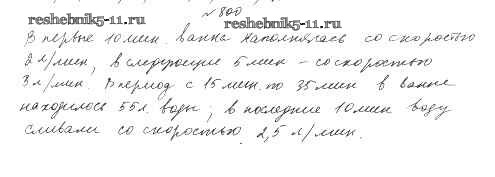 № 800
reshebnik5-11.ru
reshebnik5-11.ru
В первые 10 мин. ванна наполнялась со скоростью
2 л/мин, в следующие 5 мин – со скоростью
3 л/мин. В период с 15 мин. по 35 мин в ванне
находилось 55 л. воды; в последние 10 мин воду
сливали со скоростью 2,5 л/мин.